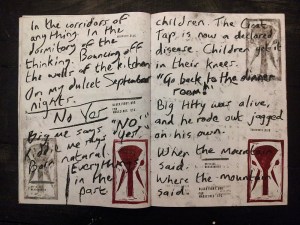 In the corridors of
anything. In the
dormitory of the
thinking. Bouncing off
the walls of the kitchen
On my dulcet September
nights.
No Yes
Big me says, "NO,"
me says yes!
Born natural.
Everything
in the
past
children. The Goat
Tap, is now a declared
disease. Children get it
in their knees.
"Go back to the dinner
room!"
Big was alive,
and he rode out jagged
on his own.
When the mountain
said.
Where the mountain
said.